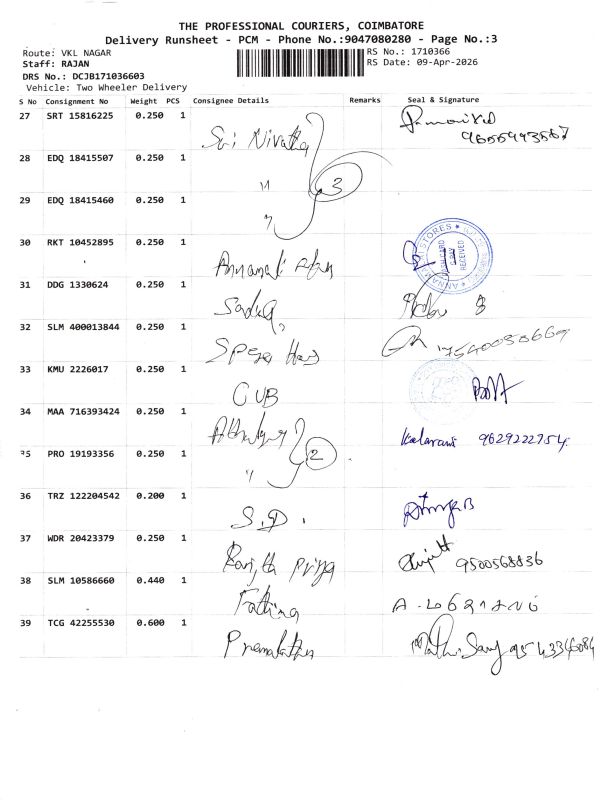 THE PROFESSIONAL COURIERS, COIMBATORE
Delivery Runsheet - PCM - Phone No.:9047080280 - Page No.:3
Route: VKL NAGAR RS No.: 1710366
Staff: RAJAN RS Date: 09-Apr-2026
DRS No.: DCJB171036603
Vehicle: Two Wheeler Delivery
S No Consignment No Weight PCS Consignee Details Remarks Seal & Signature
27 SRT 15816225 0.250 1 Sri Nivatha
28 EDQ 18415507 0.250 1 " 3
29 EDQ 18415460 0.250 1 "
30 RKT 10452895 0.250 1 STORES RECEIVED
31 DDG 1330624 0.250 1
32 SLM 400013844 0.250 1
33 KMU 2226017 0.250 1 CUB
34 MAA 716393424 0.250 1 Kalarani 9629222754
35 PRO 19193356 0.250 1 " 2
36 TRZ 122204542 0.200 1 S.D.
37 WDR 20423379 0.250 1 Ranjith Priya 9500568836
38 SLM 10586660 0.440 1 Fathima
39 TCG 42255530 0.600 1 Premalatha